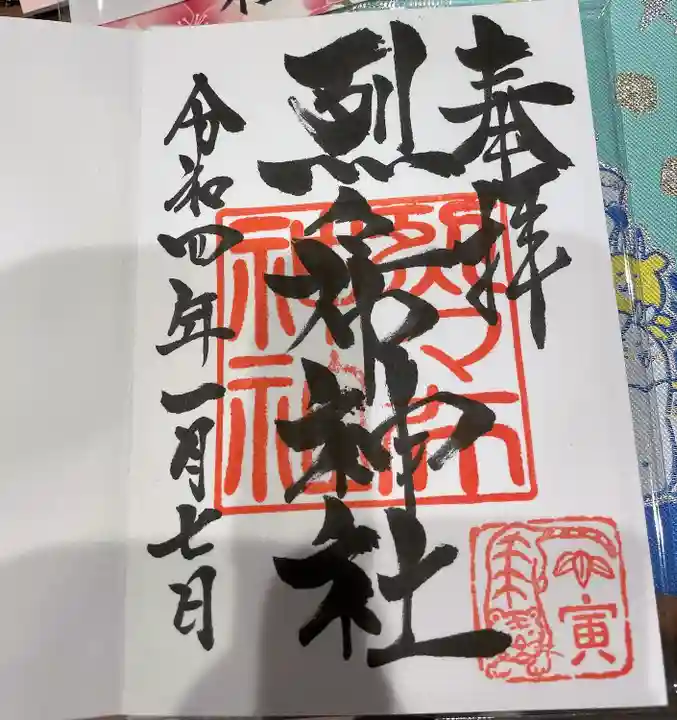 奉拝
烈々布神社
令和四年一月七日
寅